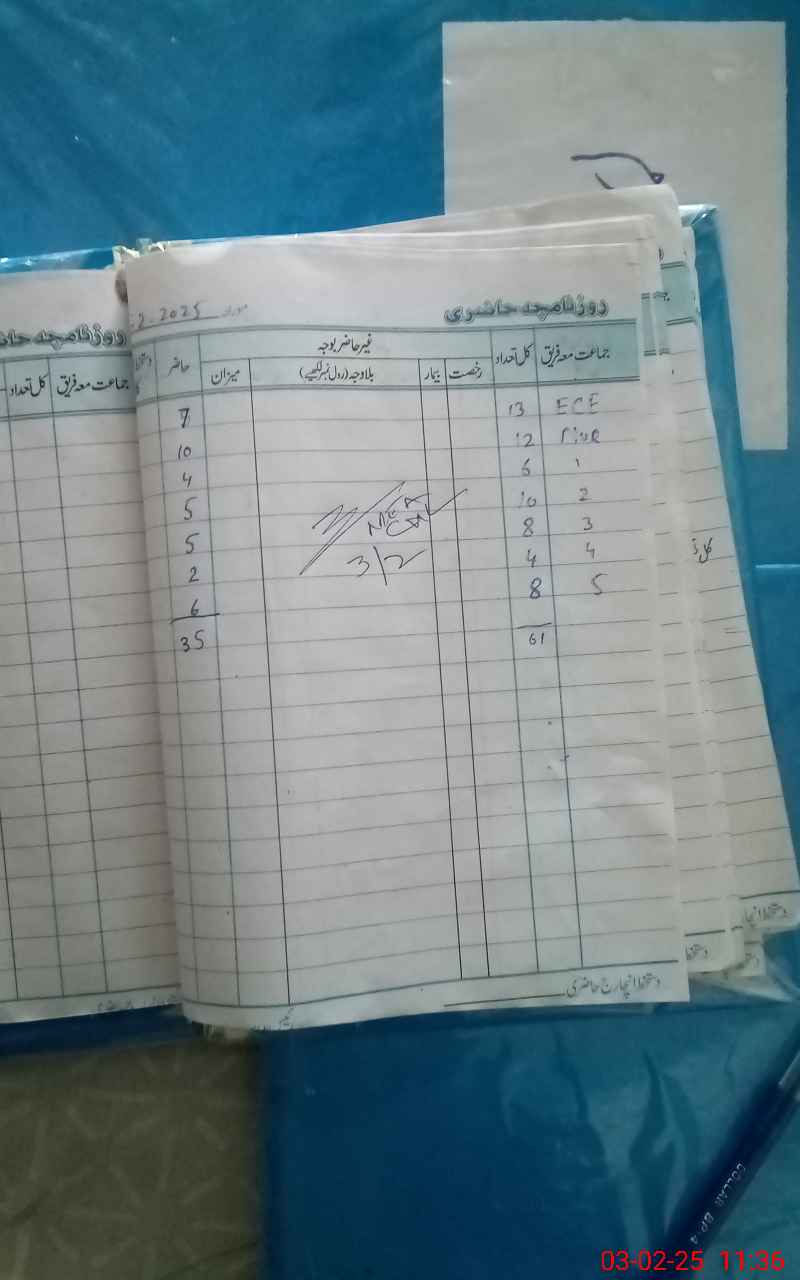 روزنامچہ حاضری مورخہ 2-2025
جماعت معہ فریق کل تعداد غیر حاضر بوجہ حاضر
رخصت بیمار بلاوجہ (رول نمبر لکھیے) میزان
ECE 13 7
12 10
1 6 4
2 10 5
3 8 5
4 4 2
5 8 6
61 35
MEA
3/2
دستخط انچارج حاضری
روزنامچہ حاضری
جماعت معہ فریق کل تعداد
DOLLAR BP-4
03-02-25 11:36